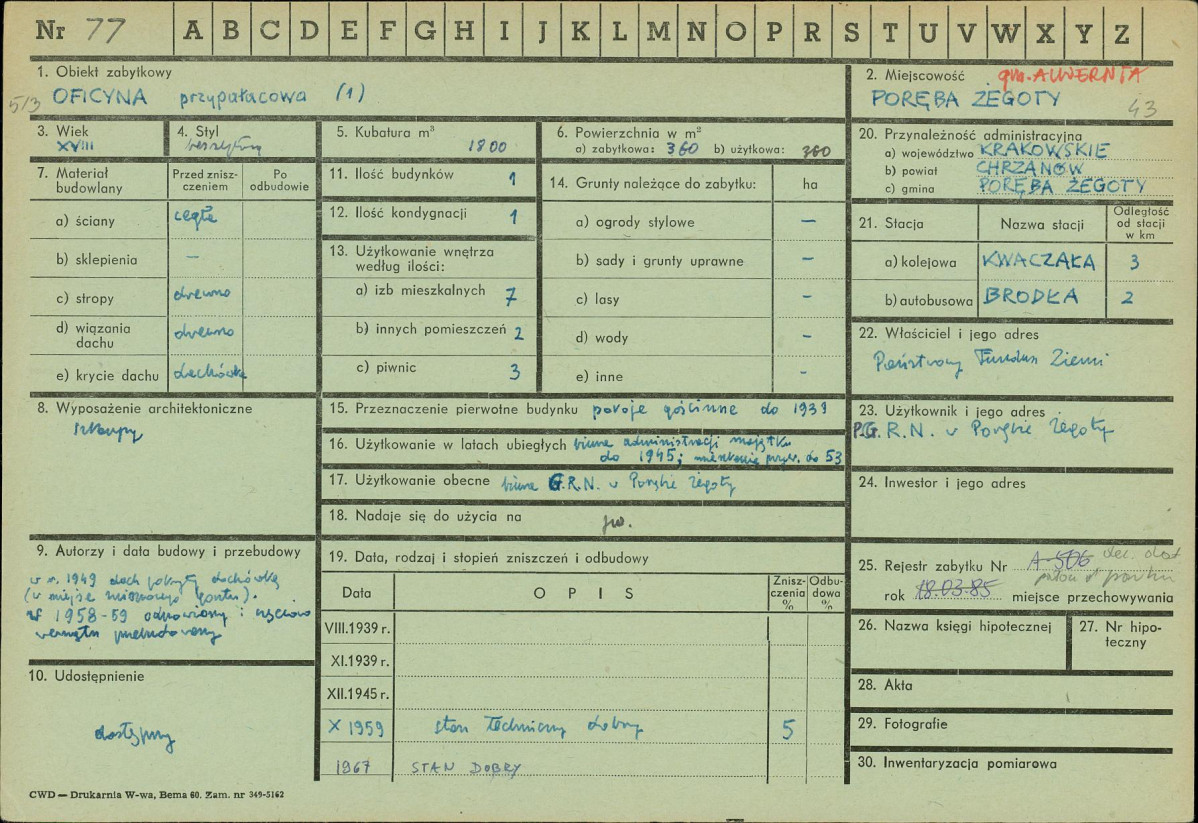 Nr 77 A B C D E F G H I J K L M N O P R S T U V W X Y Z
1. Obiekt zabytkowy
5/3 OFICYNA przypałacowa (1)
2. Miejscowość gm. ALWERNIA
PORĘBA ŻEGOTY 43
3. Wiek
XVIII
4. Styl
bezstylowy
5. Kubatura m³
1800
6. Powierzchnia w m²
a) zabytkowa: 360 b) użytkowa: 360
7. Materiał budowlany
Przed zniszczeniem
Po odbudowie
a) ściany cegła
b) sklepienia –
c) stropy drewno
d) wiązania dachu drewno
e) krycie dachu dachówka
8. Wyposażenie architektoniczne
9. Autorzy i data budowy i przebudowy
w r. 1949 dach pokryty dachówką
(w miejsce gontu).
w 1958-59 odnowiony i częściowo
wewnątrz przebudowany
10. Udostępnienie
dostępny
11. Ilość budynków 1
12. Ilość kondygnacji 1
13. Użytkowanie wnętrza
według ilości:
a) izb mieszkalnych 7
b) innych pomieszczeń 2
c) piwnic 3
14. Grunty należące do zabytku: ha
a) ogrody stylowe –
b) sady i grunty uprawne –
c) lasy –
d) wody –
e) inne –
15. Przeznaczenie pierwotne budynku pokoje gościnne do 1939
16. Użytkowanie w latach ubiegłych biura administracji majątku
do 1945; mieszkanie pryw. do 53
17. Użytkowanie obecne biura G.R.N. w Porębie Żegoty
18. Nadaje się do użycia na jw.
19. Data, rodzaj i stopień zniszczeń i odbudowy
Data O P I S Zniszczenia % Odbudowa %
VIII.1939 r.
XI.1939 r.
XII.1945 r.
X 1959 stan techniczny dobry 5
1967 STAN DOBRY
20. Przynależność administracyjna
a) województwo KRAKOWSKIE
b) powiat CHRZANÓW
c) gmina PORĘBA ŻEGOTY
21. Stacja Nazwa stacji Odległość od stacji w km
a) kolejowa KWACZAŁA 3
b) autobusowa BRODŁA 2
22. Właściciel i jego adres
Państwowy Fundusz Ziemi
23. Użytkownik i jego adres
P.G.R.N. w Porębie Żegoty
24. Inwestor i jego adres
25. Rejestr zabytku Nr A-506 dec. dot
rok 18.03.85 miejsce przechowywania
26. Nazwa księgi hipotecznej
27. Nr hipoteczny
28. Akta
29. Fotografie
30. Inwentaryzacja pomiarowa
CWD — Drukarnia W-wa, Bema 60. Zam. nr 349-5162